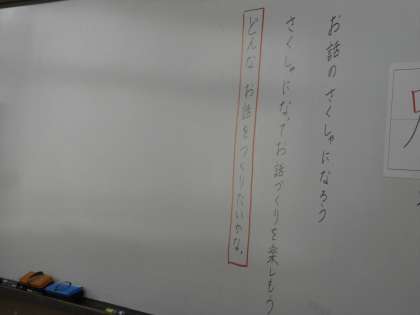 お話のさくしゃになろう
さくしゃになってお話づくりを楽しもう
どんなお話をつくりたいかな。